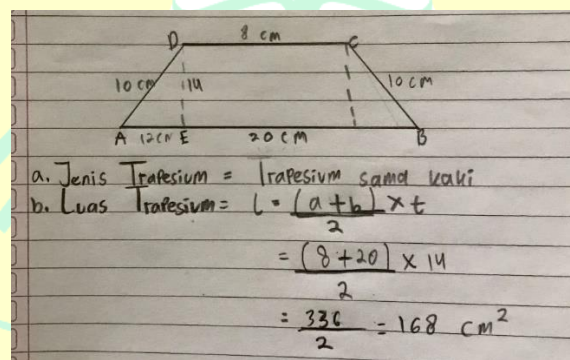 8 cm
D C
10 cm 14 10 cm
A 12cm E 20 cm B
a. Jenis Trapesium = Trapesium sama kaki
b. Luas Trapesium = L = (a+b) x t
2
= (8+20) x 14
2
= 336 = 168 cm²
2